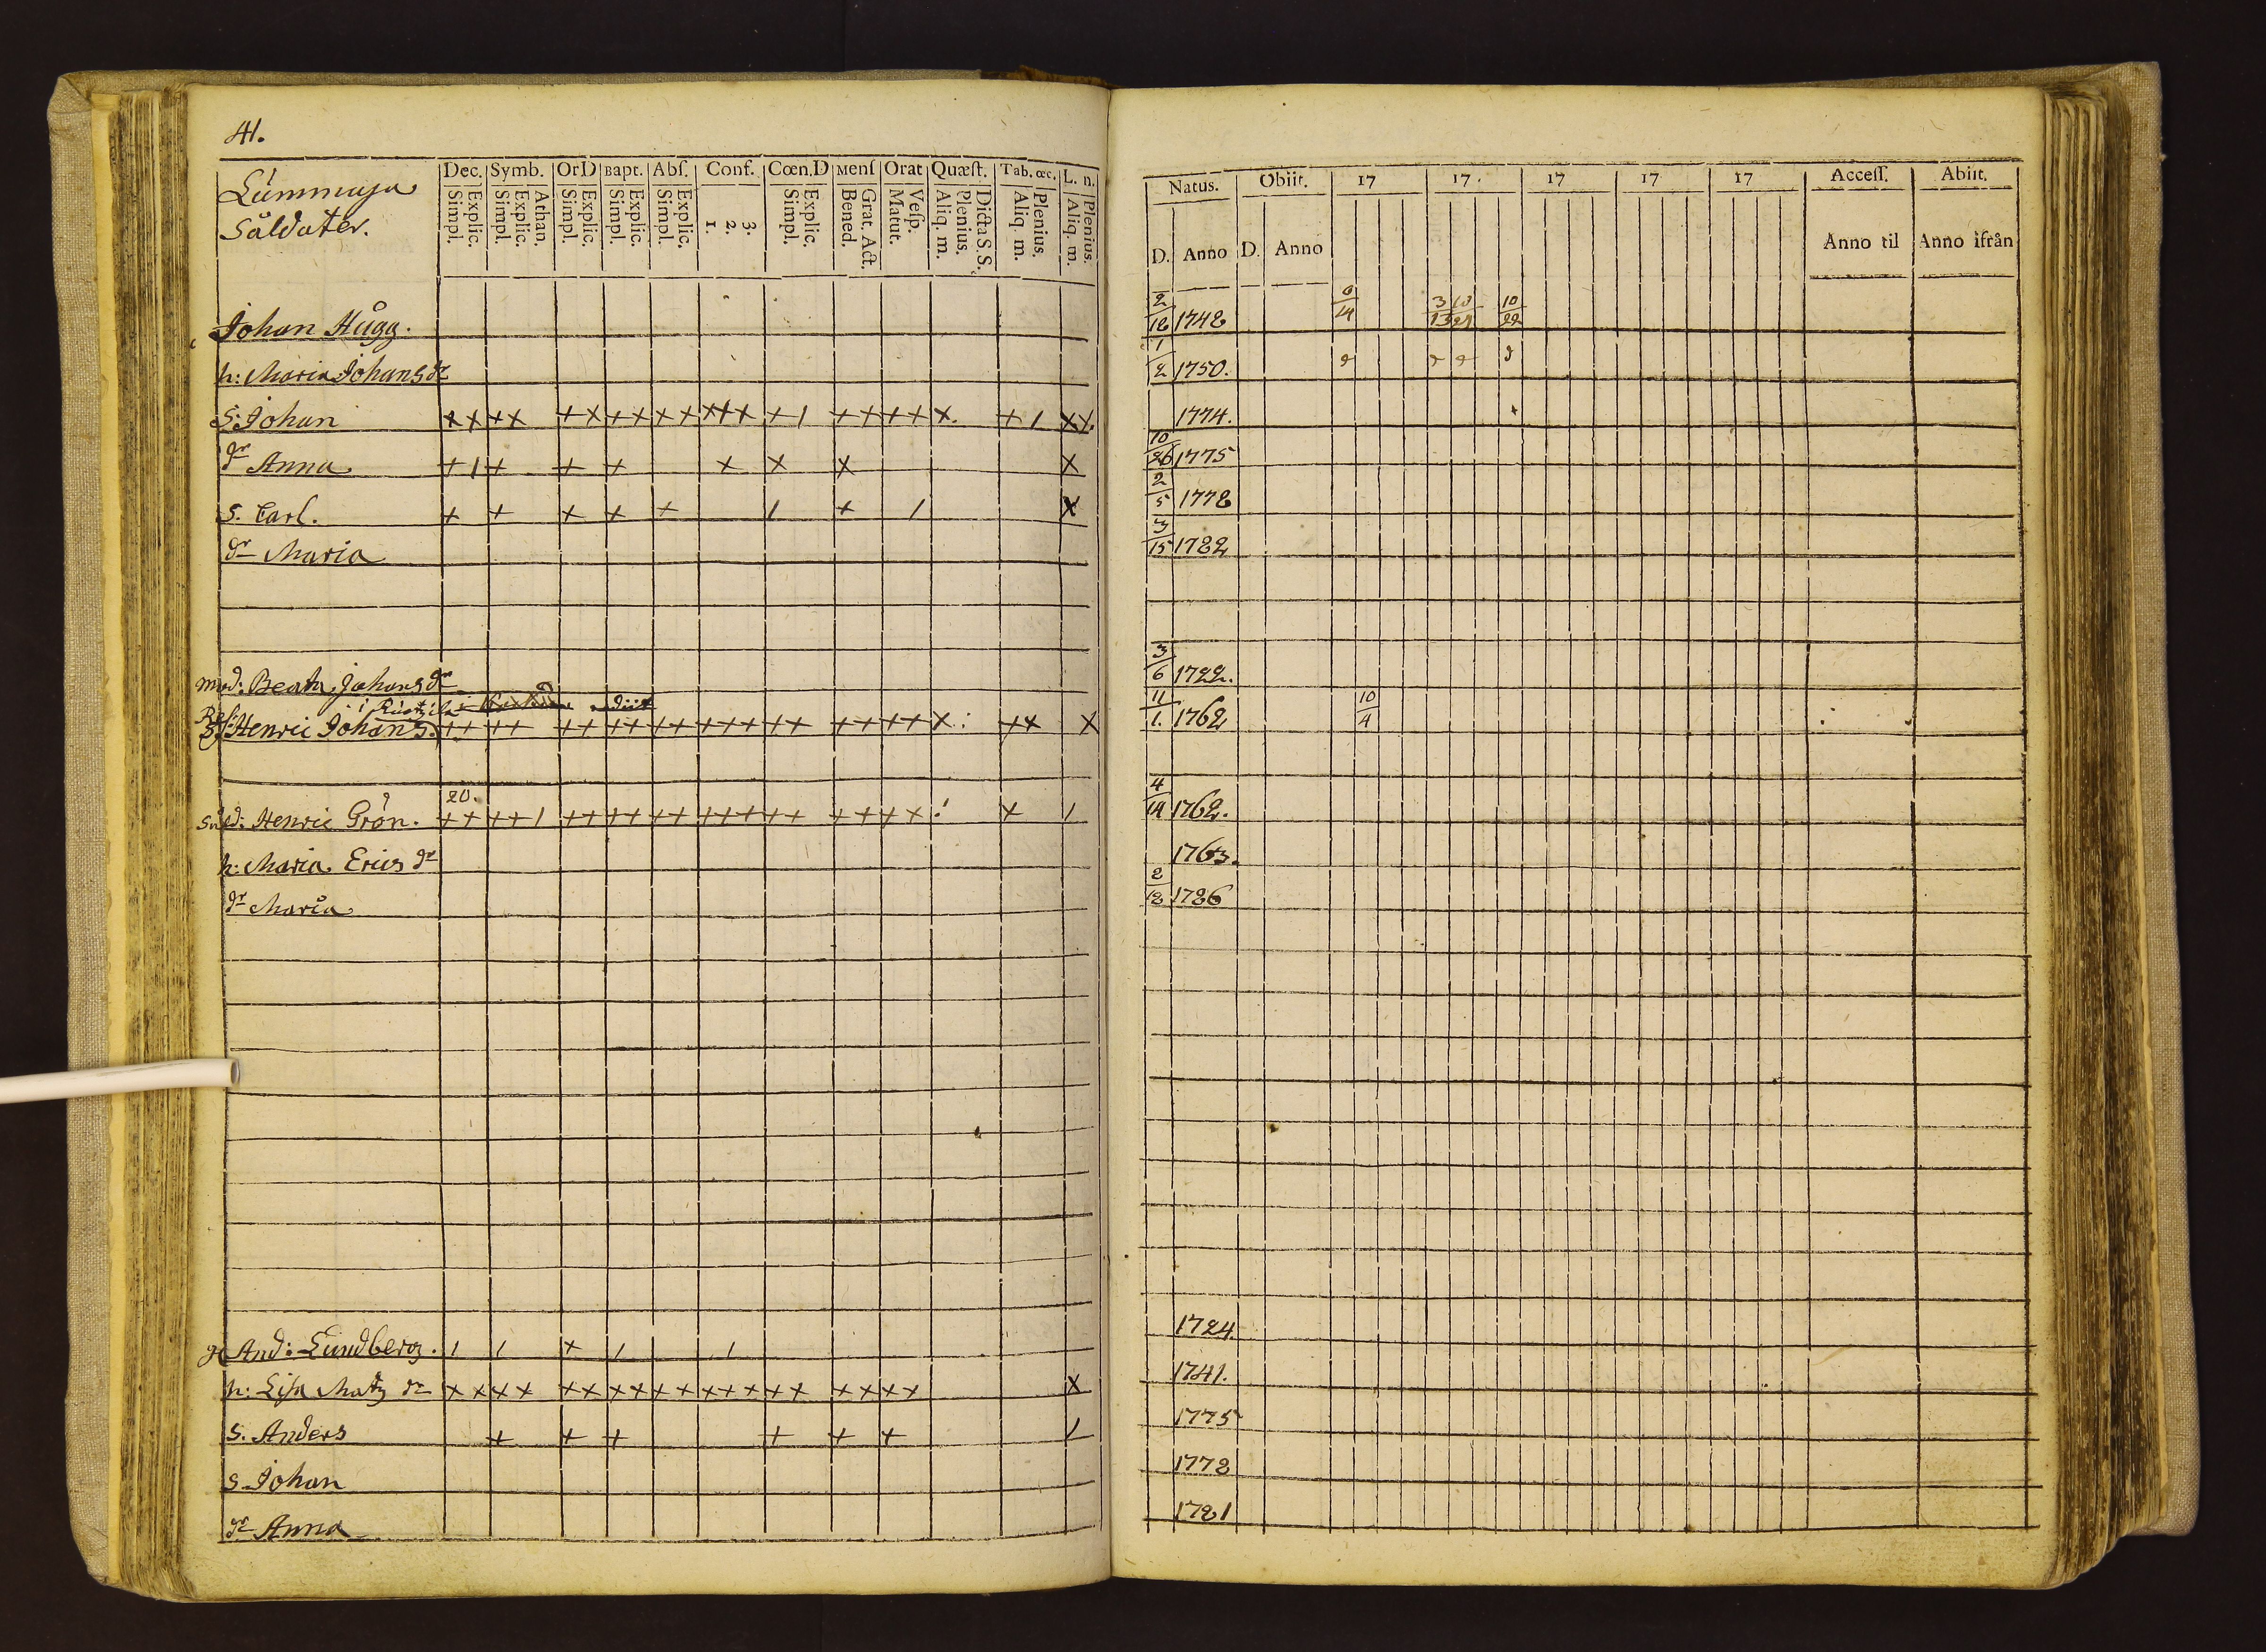 41.
Lummaja
Såldater.
Dec. Symb. Or D Bapt. Abſ. Conf. Cœn.D Menſ Orat Quæſt. Tab. œc. L. n.
Simpl. Explic. Simpl. Explic. Athan. Simpl. Explic. Simpl. Explic. Simpl. Explic. 1. 2. 3. Simpl. Explic. Bened. Grat. Act. Matut. Veſp. Aliq. m. Plenius. Dicta S.S. Aliq. m. Plenius. Aliq. m. Plenius.
Natus. Obiit. 17 17 17 17 17 Acceſſ. Abiit.
D. Anno D. Anno Anno til Anno ifrån
Johan Hugg. 2/18 1748 6/14 3/13 10/21 10/22
h: Maria Johans dr 1/2 1750.
S: Johan x x x x + x + x x x x + x + / + + + + x. + / x x. 1774.
dr Anna + / + + + x x x x 10/26 1775
S. Carl. + + + + + / + / x 2/5 1778
dr Maria 3/15 1782
Mod: Beata Johans dr 3/6 1722.
Henric Johans. + + + + + + + + + + + + + + + + + + + x + x x 11/1. 1762 10/4
20.
Såld: Henric Grön. + + + + / + + + + + + + + + + + + + + x x / 4/14 1762.
h: Maria Erics dr 1763.
dr Maria 2/18 1786
And: Lundberg. / / x / / 1724.
h: Lisa Matz dr x x x x x x x x x x x x x x x x x x x x 1741.
S. Anders + + + + + + / 1775
S. Johan 1778
dr Anna 1781